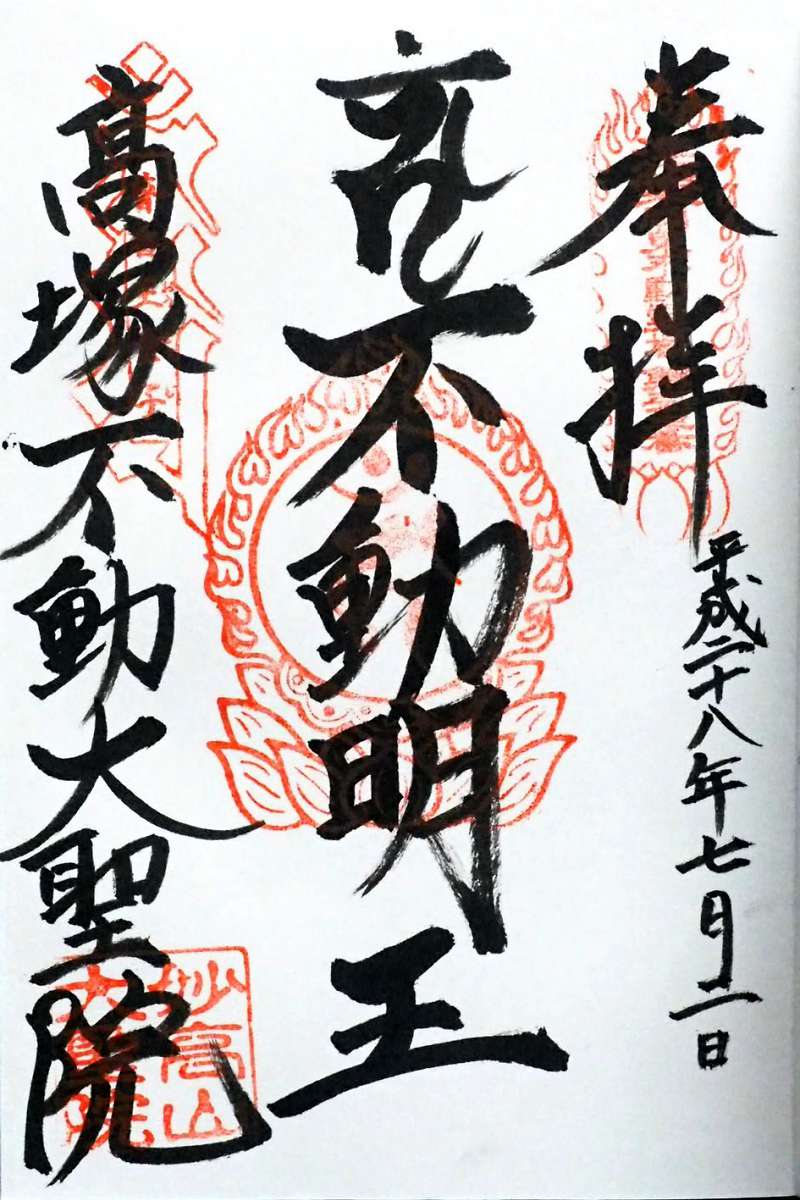 奉拝
平成二十八年七月二日
不動明王
高塚不動大聖院
妙高山